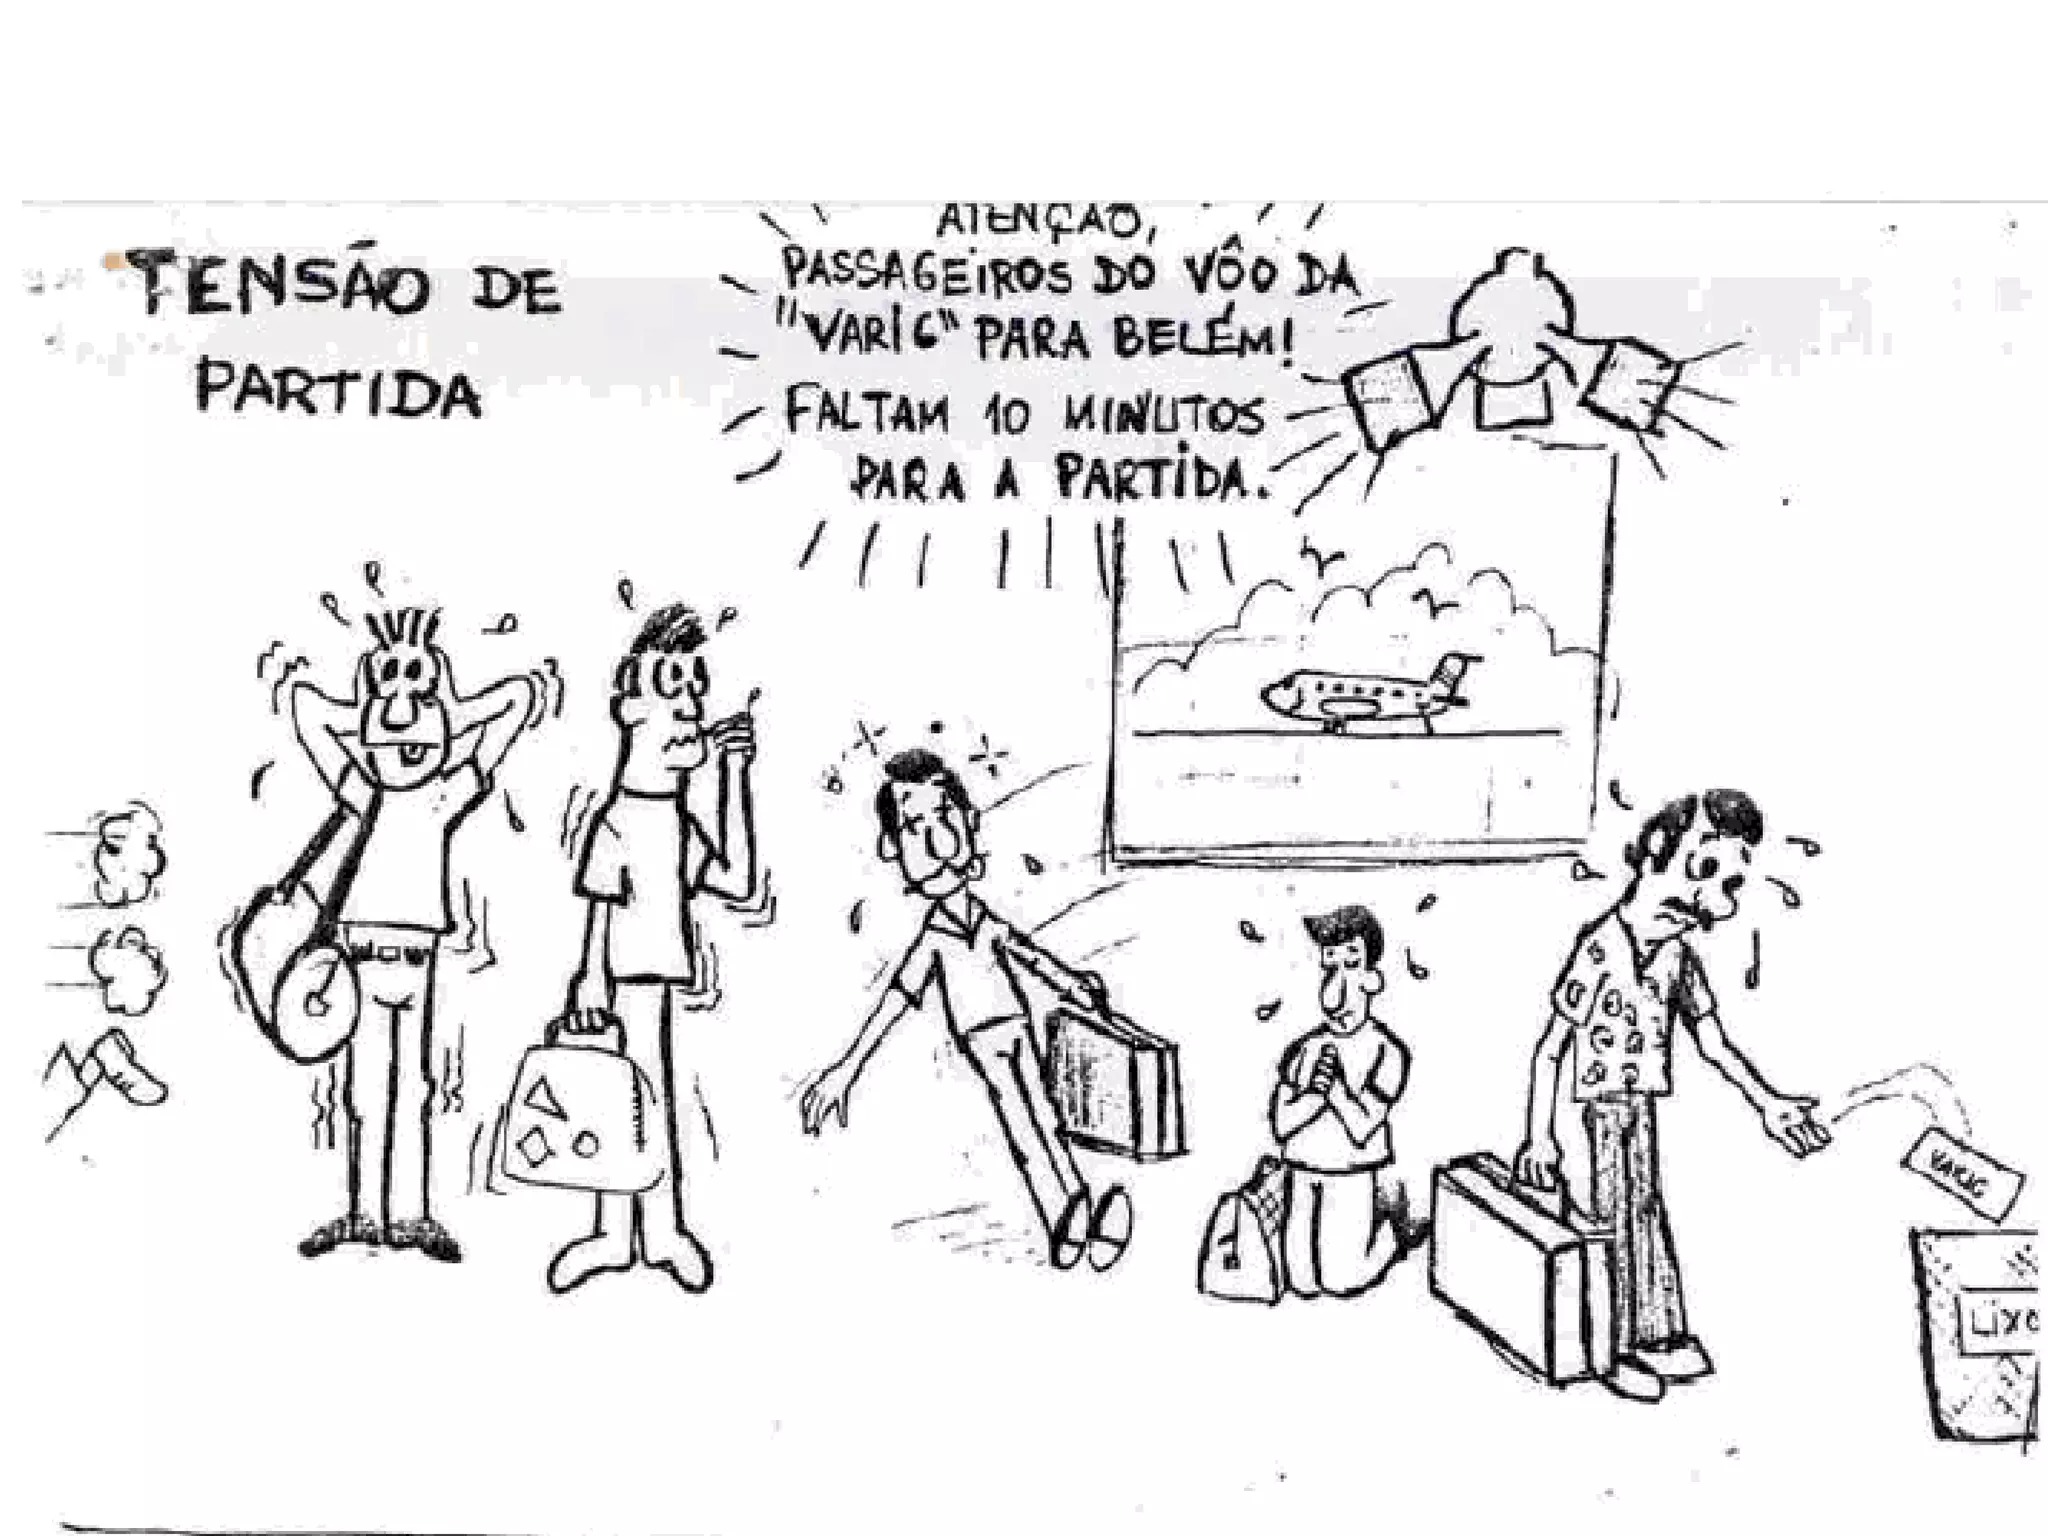 TENSÃO DE
PARTIDA
ATENÇÃO,
PASSAGEIROS DO VÔO DA
"VARIG" PARA BELÉM!
FALTAM 10 MINUTOS
PARA A PARTIDA.
VARIG
LIXO